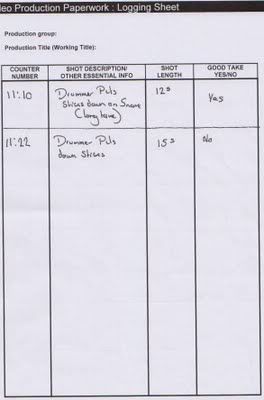 deo Production Paperwork : Logging Sheet
Production group:
Production Title (Working Title):
COUNTER NUMBER
SHOT DESCRIPTION/ OTHER ESSENTIAL INFO
SHOT LENGTH
GOOD TAKE YES/NO
11:10
Drummer Puts
Sticks down on Snare
(long take)
12s
Yes
11:22
Drummer Puts
down Sticks
15s
No